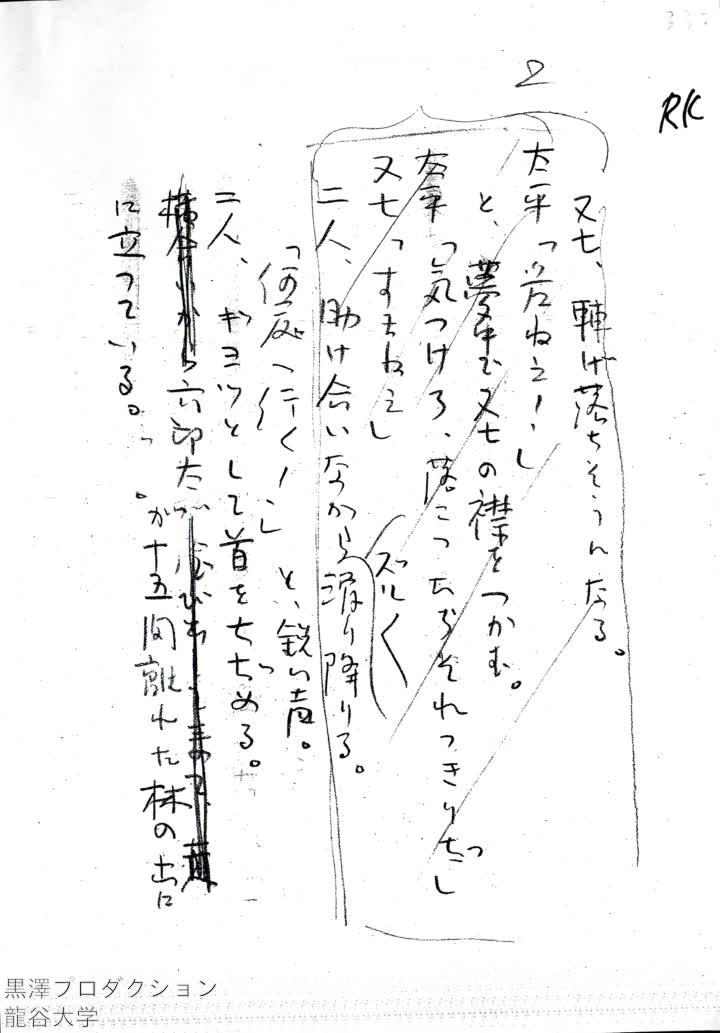 2
RK
又七、転げ落ちそうになる。
太平「危ねえ！」
と、夢中で又七の襟をつかむ。
太平「気つけろ、落こったらそれっきりだっ」
又七「すまねえ」
ズルく
二人、助け合いながら滑り降りる。
「何処へ行く！」と、鋭い声。
二人、ギョッとして首をちぢめる。
六郎太が
が十五間離れた林の出に
に立っている。
黒澤プロダクション
龍谷大学